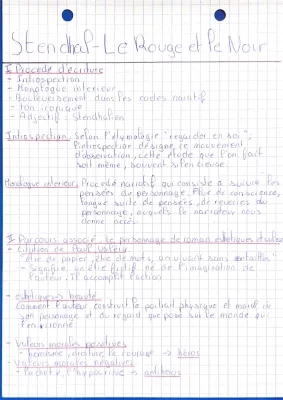 Stendhal - Le Rouge et le Noir
I Procédé d'écriture
- Introspection
- Monologue intérieur
- Bouleversement dans les codes narratif
- ton ironique
- Adjectif : Stendhalien
Introspection, Selon l'étymologie "regarder en soi",
l'introspection désigne, ce mouvement
d'observation, cette étude que l'on fait
soit même, souvent silencieuse.
Monologue intérieur, Procédé narratif qui consiste à suivre les
pensées du personnage, flux de conscience,
longue suite de pensées, de rêveries du
personnage, auquels le narrateur nous
donne accès.
II Parcours associé, le personnage de roman, esthétiques et valeurs
- Citation de Paul Valéry
"être de papier, être de mots, un vivant sans entrailles"
- Signifie, un être fictif né de l'imagination de
l'auteur. Il accomplit l'action
- esthétiques → beauté
Comment l'auteur construit le portrait physique et moral de
son personnage et du regard que pose sur le monde qui
l'environne
- Valeurs morales positives
- héroïsme, droiture, le courage → héros
- Valeurs morales négatives
- lacheté, l'hypocrisie → antihéros